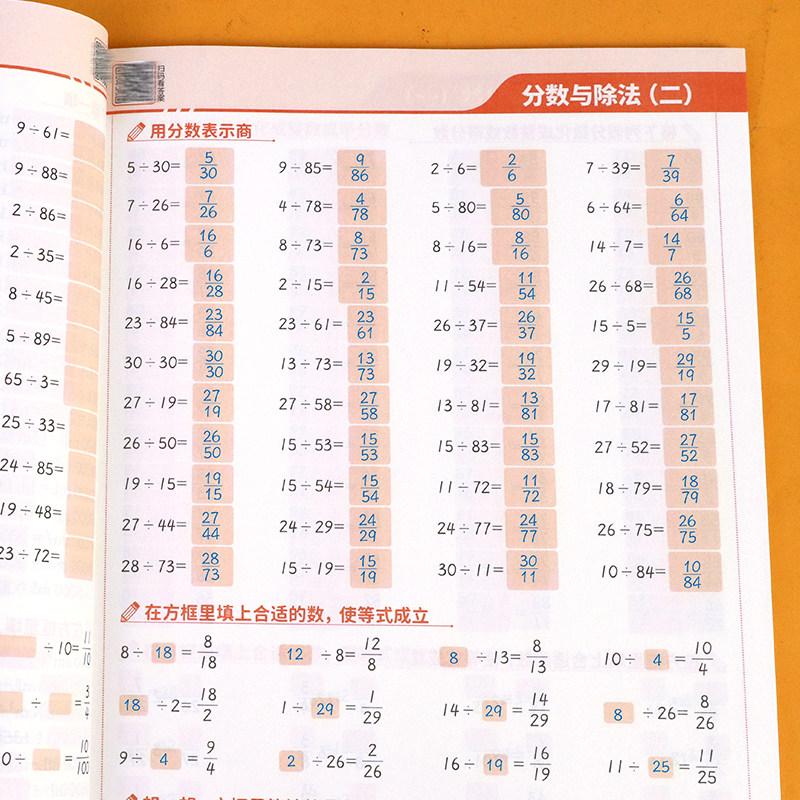 9÷61=
9÷88=
2÷86=
2÷35=
8÷45=
5÷89=
65÷3=
25÷33=
24÷85=
19÷48=
23÷72=
÷10=11/10
÷ =3/4
扫码看答案
分数与除法（二）
用分数表示商
5÷30=5/30 9÷85=9/86 2÷6=2/6 7÷39=7/39
7÷26=7/26 4÷78=4/78 5÷80=5/80 6÷64=6/64
16÷6=16/6 8÷73=8/73 8÷16=8/16 14÷7=14/7
16÷28=16/28 2÷15=2/15 11÷54=11/54 26÷68=26/68
23÷84=23/84 23÷61=23/61 26÷37=26/37 15÷5=15/5
30÷30=30/30 13÷73=13/73 19÷32=19/32 29÷19=29/19
27÷19=27/19 27÷58=27/58 13÷81=13/81 17÷81=17/81
26÷50=26/50 15÷53=15/53 15÷83=15/83 27÷52=27/52
19÷15=19/15 15÷54=15/54 11÷72=11/72 18÷79=18/79
27÷44=27/44 24÷29=24/29 24÷77=24/77 26÷75=26/75
28÷73=28/73 15÷19=15/19 30÷11=30/11 10÷84=10/84
在方框里填上合适的数，使等式成立
8÷18=8/18 12÷8=12/8 8÷13=8/13 10÷4=10/4
18÷2=18/2 1÷29=1/29 14÷29=14/29 8÷26=8/26
9÷4=9/4 2÷26=2/26 16÷19=16/19 11÷25=11/25